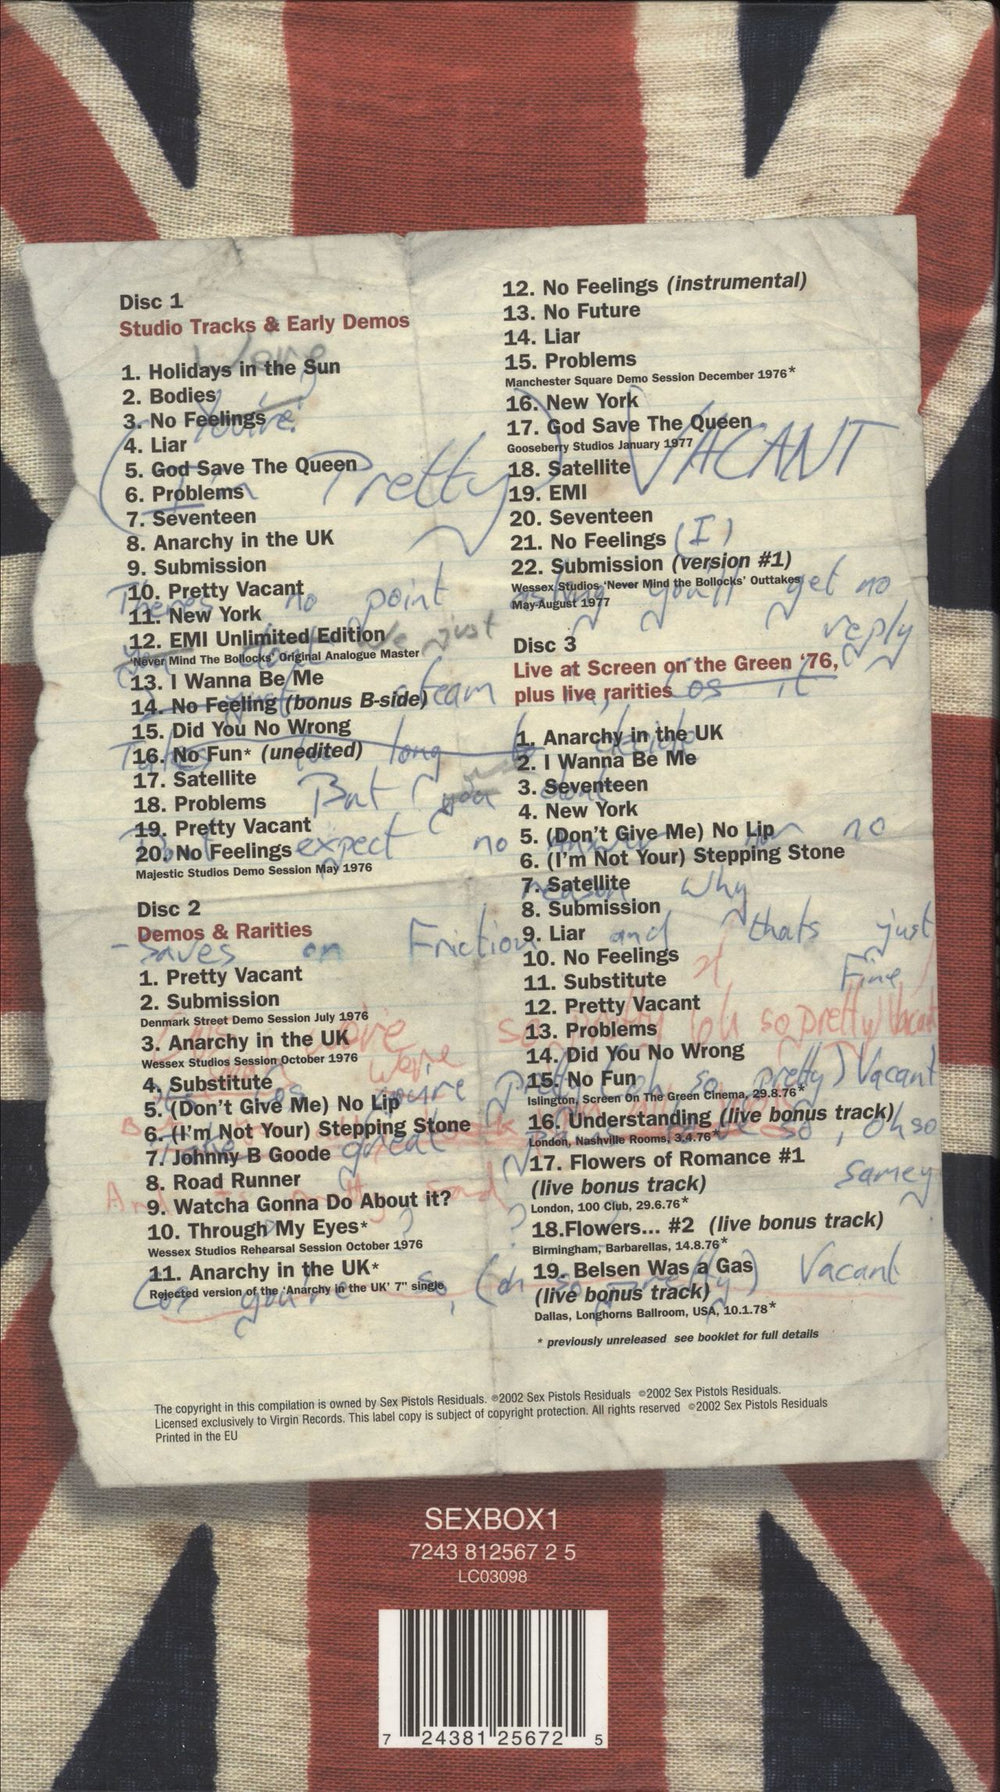 Disc 1
Studio Tracks & Early Demos
1. Holidays in the Sun
2. Bodies
3. No Feelings
4. Liar
5. God Save The Queen
6. Problems
7. Seventeen
8. Anarchy in the UK
9. Submission
10. Pretty Vacant
11. New York
12. EMI Unlimited Edition
'Never Mind The Bollocks' Original Analogue Master
13. I Wanna Be Me
14. No Feeling (bonus B-side)
15. Did You No Wrong
16. No Fun* (unedited)
17. Satellite
18. Problems
19. Pretty Vacant
20. No Feelings
Majestic Studios Demo Session May 1976
Disc 2
Demos & Rarities
1. Pretty Vacant
2. Submission
Denmark Street Demo Session July 1976
3. Anarchy in the UK
Wessex Studios Session October 1976
4. Substitute
5. (Don't Give Me) No Lip
6. (I'm Not Your) Stepping Stone
7. Johnny B Goode
8. Road Runner
9. Watcha Gonna Do About it?
10. Through My Eyes*
Wessex Studios Rehearsal Session October 1976
11. Anarchy in the UK*
Rejected version of the 'Anarchy in the UK' 7" single
12. No Feelings (instrumental)
13. No Future
14. Liar
15. Problems
Manchester Square Demo Session December 1976*
16. New York
17. God Save The Queen
Gooseberry Studios January 1977
18. Satellite
19. EMI
20. Seventeen
21. No Feelings
22. Submission (version #1)
Wessex Studios 'Never Mind the Bollocks' Outtakes
May-August 1977
Disc 3
Live at Screen on the Green '76,
plus live rarities
1. Anarchy in the UK
2. I Wanna Be Me
3. Seventeen
4. New York
5. (Don't Give Me) No Lip
6. (I'm Not Your) Stepping Stone
7. Satellite
8. Submission
9. Liar
10. No Feelings
11. Substitute
12. Pretty Vacant
13. Problems
14. Did You No Wrong
15. No Fun
Islington, Screen On The Green Cinema, 29.8.76*
16. Understanding (live bonus track)
London, Nashville Rooms, 3.4.76*
17. Flowers of Romance #1
(live bonus track)
London, 100 Club, 29.6.76*
18.Flowers... #2 (live bonus track)
Birmingham, Barbarellas, 14.8.76*
19. Belsen Was a Gas
(live bonus track)
Dallas, Longhorns Ballroom, USA, 10.1.78*
* previously unreleased see booklet for full details
You're
(I'm Pretty) VACANT
(I)
Theres no point asking you'll get no
reply
just steam Cos it
Takes too long to decide
But you dont
expect no answer for no
reason Why
- saves on Friction and thats just
Fine
so pretty (oh so pretty) Vacant
we're
you're Pretty (oh so pretty) Vacant
great so, oh so
samey
And
Cos you're so, (oh so pretty) Vacant
The copyright in this compilation is owned by Sex Pistols Residuals. ℗2002 Sex Pistols Residuals ©2002 Sex Pistols Residuals.
Licensed exclusively to Virgin Records. This label copy is subject of copyright protection. All rights reserved ©2002 Sex Pistols Residuals
Printed in the EU
SEXBOX1
7243 812567 2 5
LC03098
7 24381 25672 5